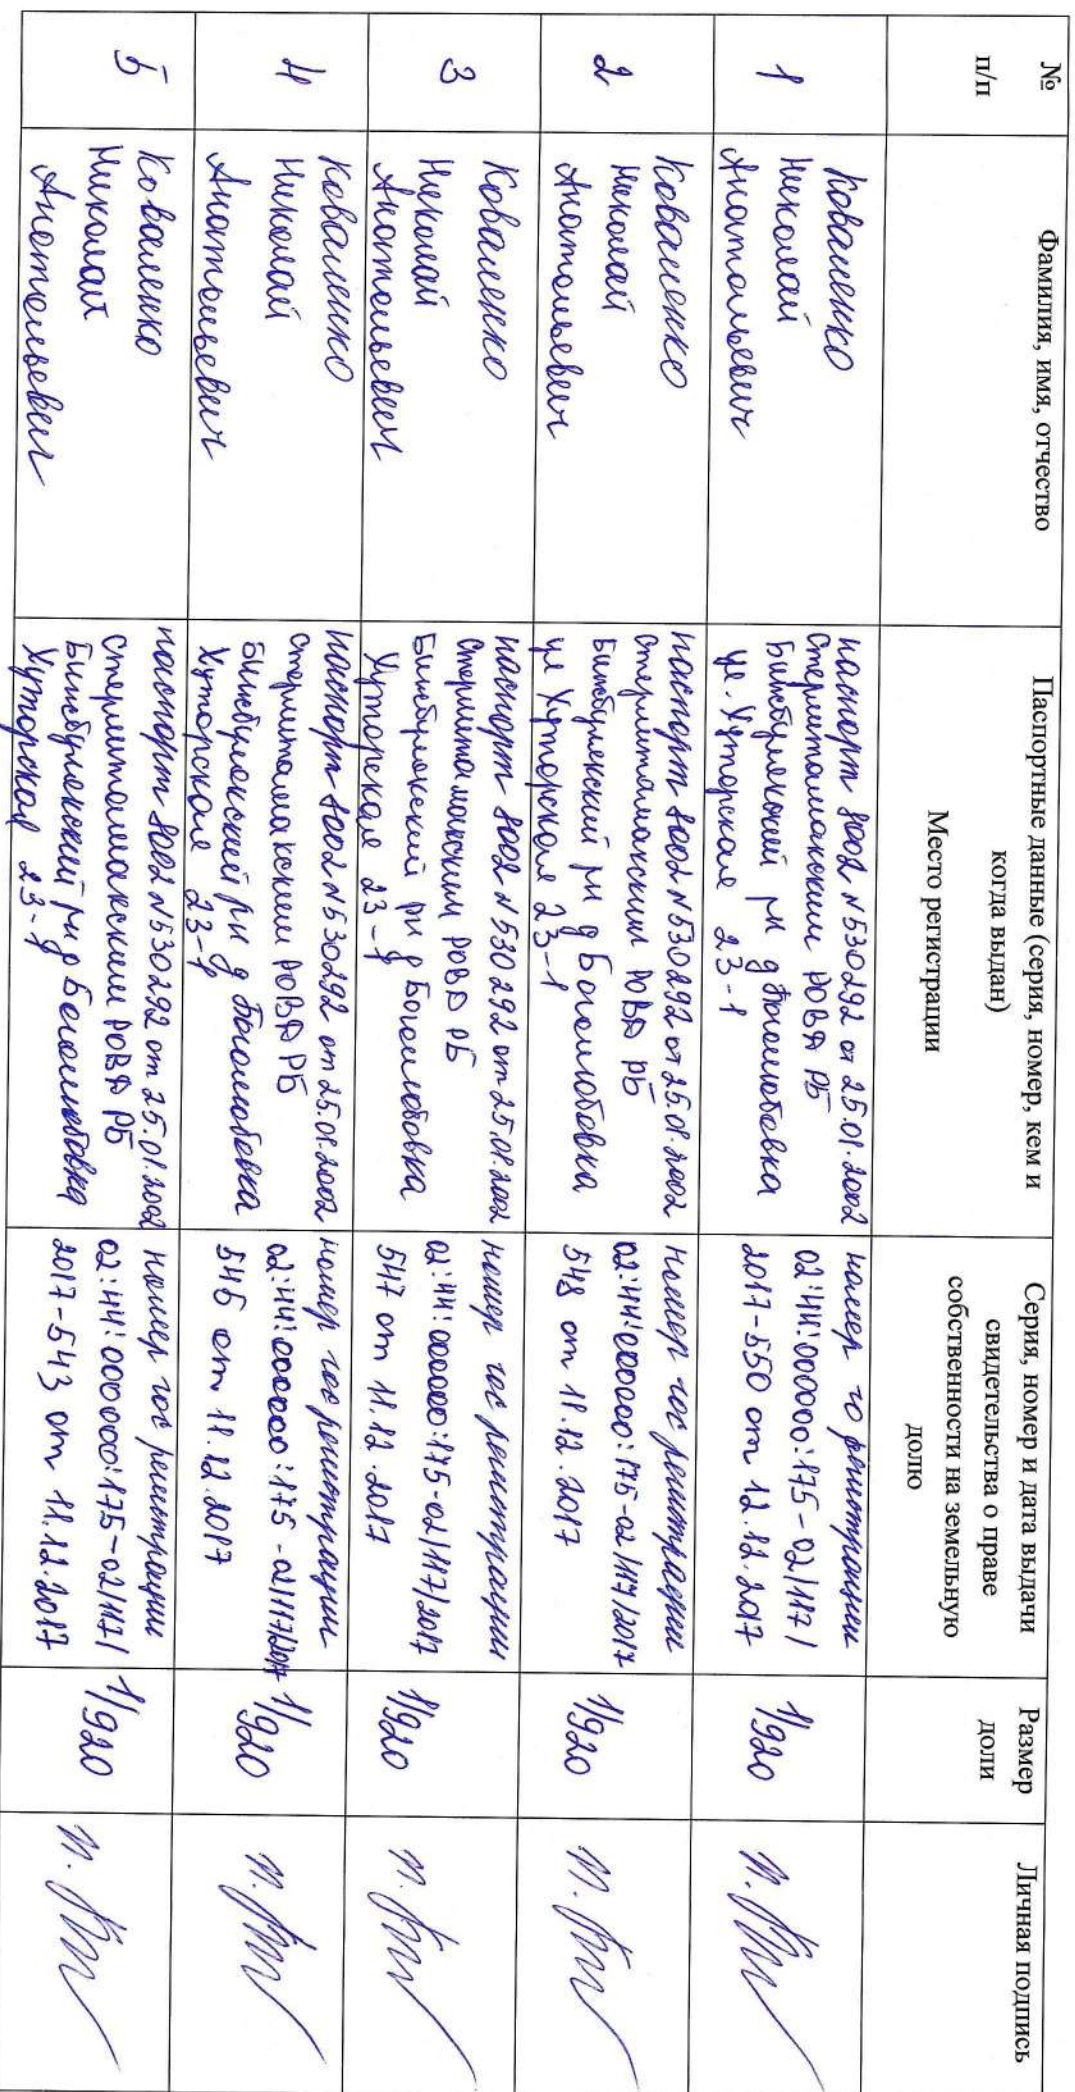 №
п/п
Фамилия, имя, отчество
Паспортные данные (серия, номер, кем и
когда выдан)
Место регистрации
Серия, номер и дата выдачи
свидетельства о праве
собственности на земельную
долю
Размер
доли
Личная подпись
1
Коваленко
Николай
Анатольевич
паспорт 8002 N530292 от 25.01.2002
стерлитамакским РОВД РБ
Бижбулякский рн д Боголюбовка
ул. Хуторская 23-1
номер го регистрации
02:44:000000:175-02/117/
2017-550 от 12.12.2017
1/920
2
Коваленко
Николай
Анатольевич
паспорт 8002 N530292 от 25.01.2002
стерлитамакским РОВД РБ
Бижбулякский рн д Боголюбовка
ул Хуторская 23-1
номер гос регистрации
02:44:000000:175-02/117/2017
548 от 11.12.2017
1/920
3
Коваленко
Николай
Анатольевич
паспорт 8002 N530292 от 25.01.2002
стерлитамакским РОВД РБ
Бижбулякский рн д Боголюбовка
Хуторская 23-1
номер гос регистрации
02:44:000000:175-02/117/2017
547 от 11.12.2017
1/920
4
Коваленко
Николай
Анатольевич
паспорт 8002 N530292 от 25.01.2002
стерлитамакским РОВД РБ
Бижбулякский рн д Боголюбовка
Хуторская 23-1
номер гос регистрации
02:44:000000:175-02/117/2017
546 от 11.12.2017
1/920
5
Коваленко
Николай
Анатольевич
паспорт 8002 N530292 от 25.01.2002
стерлитамакским РОВД РБ
Бижбулякский рн д Боголюбовка
Хуторская 23-1
номер гос регистрации
02:44:000000:175-02/117/
2017-543 от 11.12.2017
1/920